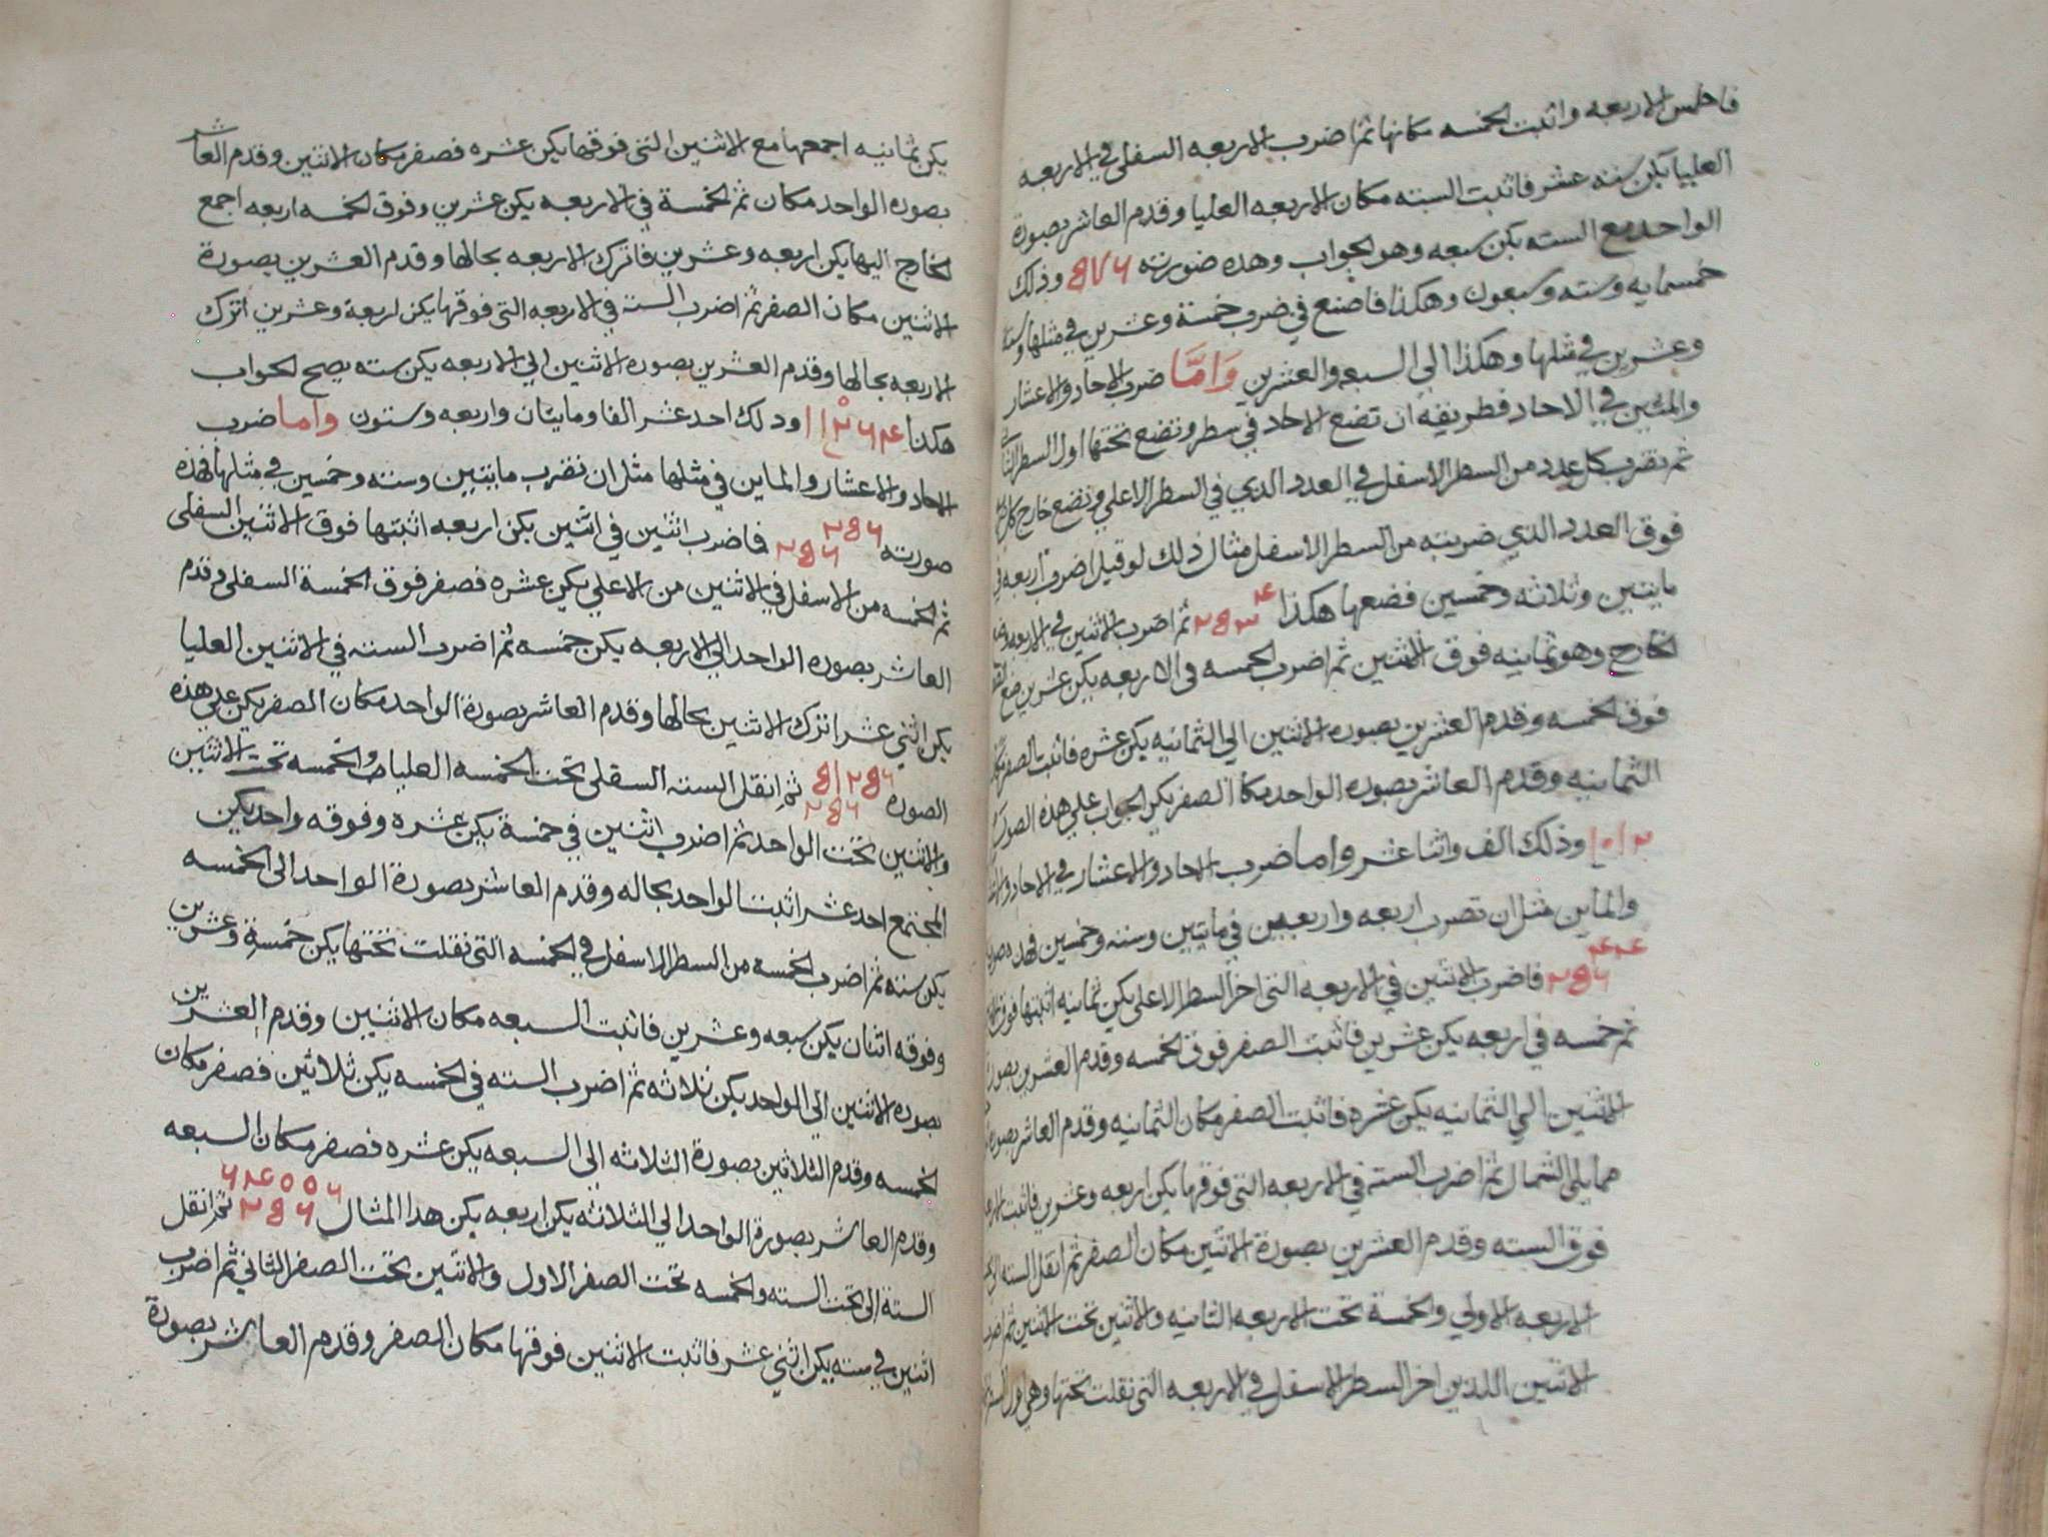 فاطمس الاربعه واثبت الخمسه مكانها ثم اضرب الاربعه السفلى في الاربعه
العليا يكن سته عشر فاثبت السته مكان الاربعه العليا وقدم العاشر بصورة
الواحد مع السته يكن سبعه وهو الجواب وهذه صورته ٥٧٦ وذلك
خمسمايه وسته وسبعون وهكذا فاصنع في ضرب خمسة وعشرين في مثلها وسته
وعشرين في مثلها وهكذا الى السبعه والعشرين وَامَّا ضرب الاحاد والاعشار
والمئين في الاحاد فطريقه ان تضع الاحاد في سطر وتضع تحتها اول السطر
ثم تضرب كل عدد من السطر الاسفل في العدد الذي في السطر الاعلى وتضع خارج كل
فوق العدد الذي ضربته من السطر الاسفل مثال ذلك لو قيل اضرب اربعه في
مايتين وثلاثه وخمسين فضعها هكذا ٤ ٢٥٣ ثم اضرب الاثنين في الاربعه
الخارج وهو ثمانيه فوق الاثنين ثم اضرب الخمسه في الاربعه يكن عشرين ضع
فوق الخمسه وقدم العشرين بصوره الاثنين الى الثمانيه يكن عشره فاثبت الصفر
الثمانيه وقدم العاشر بصوره الواحد مكان الصفر يكن الجواب على هذه الصورة
١٠١٢ وذلك الف واثنا عشر واما ضرب الاحاد والاعشار في الاحاد
والماين مثل ان تضرب اربعه واربعين في مايتين وسته وخمسين فهذه
٤٤ ٢٥٦ فاضرب الاثنين في الاربعه التى اخر السطر الاعلى يكن ثمانيه اثبتها فوق
ثم خمسه في اربعه يكن عشرين فاثبت الصفر فوق الخمسه وقدم العشرين بصورة
الاثنين الى الثمانيه يكن عشره فاثبت الصفر مكان الثمانيه وقدم العاشر بصوره
مما يلى الشمال ثم اضرب السته في الاربعه التى فوقها يكن اربعه وعشرين فاثبت
فوق السته وقدم العشرين بصورة الاثنين مكان الصفر ثم انقل السته
الاربعه الاولى والخمسة تحت الاربعه الثانيه والاثنين تحت الاثنين ثم اضرب
الاثنين اللذين اخر السطر الاسفل في الاربعه التى نقلت تحتها وهي
يكن ثمانيه اجمعها مع الاثنين التى فوقها يكن عشره فصفر مكان الاثنين وقدم العاشر
بصوره الواحد مكان ثم الخمسة في الاربعه يكن عشرين وفوق الخمسه اربعه اجمع
الخارج اليها يكن اربعه وعشرين فاترك الاربعه بحالها وقدم العشرين بصورة
الاثنين مكان الصفر ثم اضرب السته في الاربعه التى فوقها يكن اربعة وعشرين اترك
الاربعه بحالها وقدم العشرين بصوره الاثنين الى الاربعه يكن سته يصح الجواب
هكذا ١١٢٦٤ وذلك احد عشر الفا ومايتان واربعه وستون واما ضرب
الاحاد والاعشار والماين في مثلها مثل ان تضرب مايتين وسته وخمسين في مثلها فهذه
صورته ٢٥٦ ٢٥٦ فاضرب اثنين في اثنين يكن اربعه اثبتها فوق الاثنين السفلى
ثم الخمسه من الاسفل في الاثنين من الاعلى يكن عشره فصفر فوق الخمسة السفلى وقدم
العاشر بصوره الواحد الى الاربعه يكن خمسه ثم اضرب السته في الاثنين العليا
يكن اثني عشر اترك الاثنين بحالها وقدم العاشر بصورة الواحد مكان الصفر يكن على هذه
الصوره ٥١٢٥٦ ٢٥٦ ثم انقل السته السفلى تحت الخمسه العليا والخمسه تحت الاثنين
والاثنين تحت الواحد ثم اضرب اثنين في خمسة يكن عشره وفوقه واحد يكن
المجتمع احد عشر اثبت الواحد بحاله وقدم العاشر بصورة الواحد الى الخمسه
يكن سته ثم اضرب الخمسه من السطر الاسفل في الخمسه التى نقلت تحتها يكن خمسة وعشرين
وفوقه اثنان يكن سبعه وعشرين فاثبت السبعه مكان الاثنين وقدم العشرين
بصوره الاثنين الى الواحد يكن ثلاثه ثم اضرب السته في الخمسه يكن ثلاثين فصفر مكان
الخمسه وقدم الثلاثين بصورة الثلاثه الى السبعه يكن عشره فصفر مكان السبعه
وقدم العاشر بصورة الواحد الى الثلاثه يكن اربعه يكن هذا المثال ٦٤٠٠٦ ٢٥٦ ثم انقل
الستة الى تحت السته والخمسه تحت الصفر الاول والاثنين تحت الصفر الثاني ثم اضرب
اثنين في سته يكن اثني عشر فاثبت الاثنين فوقها مكان الصفر وقدم العاشر بصورة